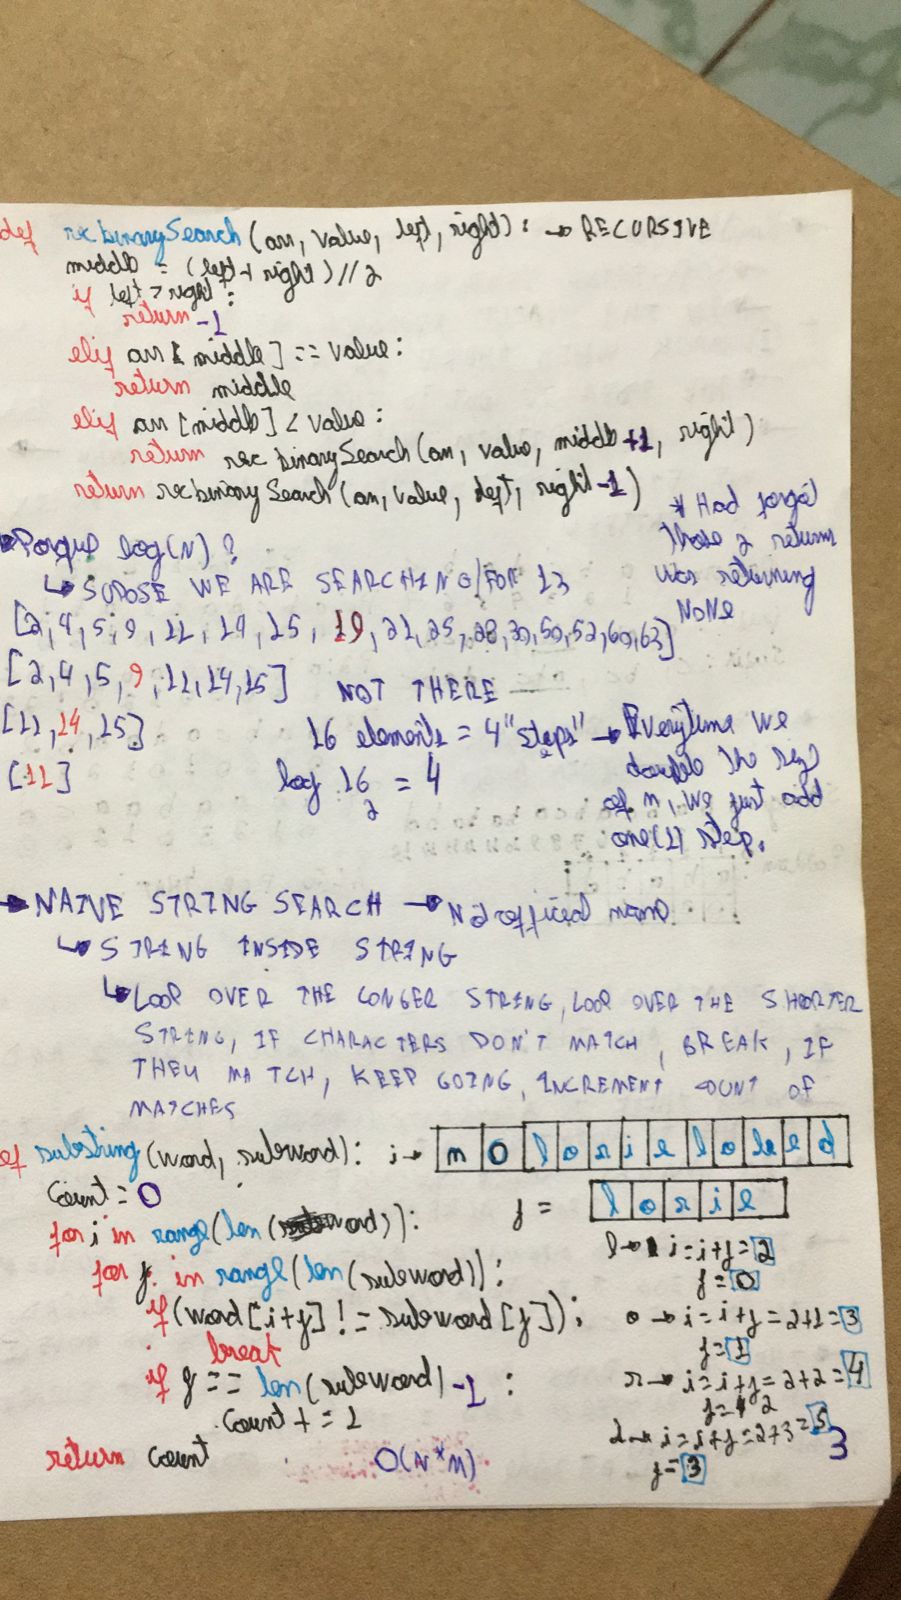 def recbinarySearch(arr, value, left, right): → RECURSIVE
middle = (left + right)//2
if left > right:
return -1
elif arr[middle] == value:
return middle
elif arr[middle] < value:
return recbinarySearch(arr, value, middle+1, right)
return recbinarySearch(arr, value, left, right-1)
* Had forgot
those 2 return
was returning
NONE
→ Porque log(N)?
↳ SUPOSE WE ARE SEARCHING FOR 13
[2, 4, 5, 9, 11, 14, 15, 19, 21, 25, 28, 30, 50, 52, 60, 63]
[2, 4, 5, 9, 11, 14, 15]
NOT THERE
[11, 14, 15]
[11]
16 elements = 4 "steps" → Everytime we
double the
of n, we just add
one(1) step.
log 16 = 4
2
→ NAIVE STRING SEARCH → official name
↳ STRING INSIDE STRING
↳ LOOP OVER THE LONGER STRING, LOOP OVER THE SHORTER
STRING, IF CHARACTERS DON'T MATCH, BREAK, IF
THEY MATCH, KEEP GOING, INCREMENT COUNT OF
MATCHES
ef substring(word, subword):
count = 0
for i in range(len(word)):
for j in range(len(subword)):
if(word[i+j] != subword[j]):
break
if j == len(subword)-1:
count += 1
return count
O(N*M)
i →
j = l o r i e
l → i = i+j = 2
j = 0
o → i = i+j = 2+1 = 3
j = 1
r → i = i+j = 2+2 = 4
j = 2
i = i+j = 2+3 = 5
j = 3
3